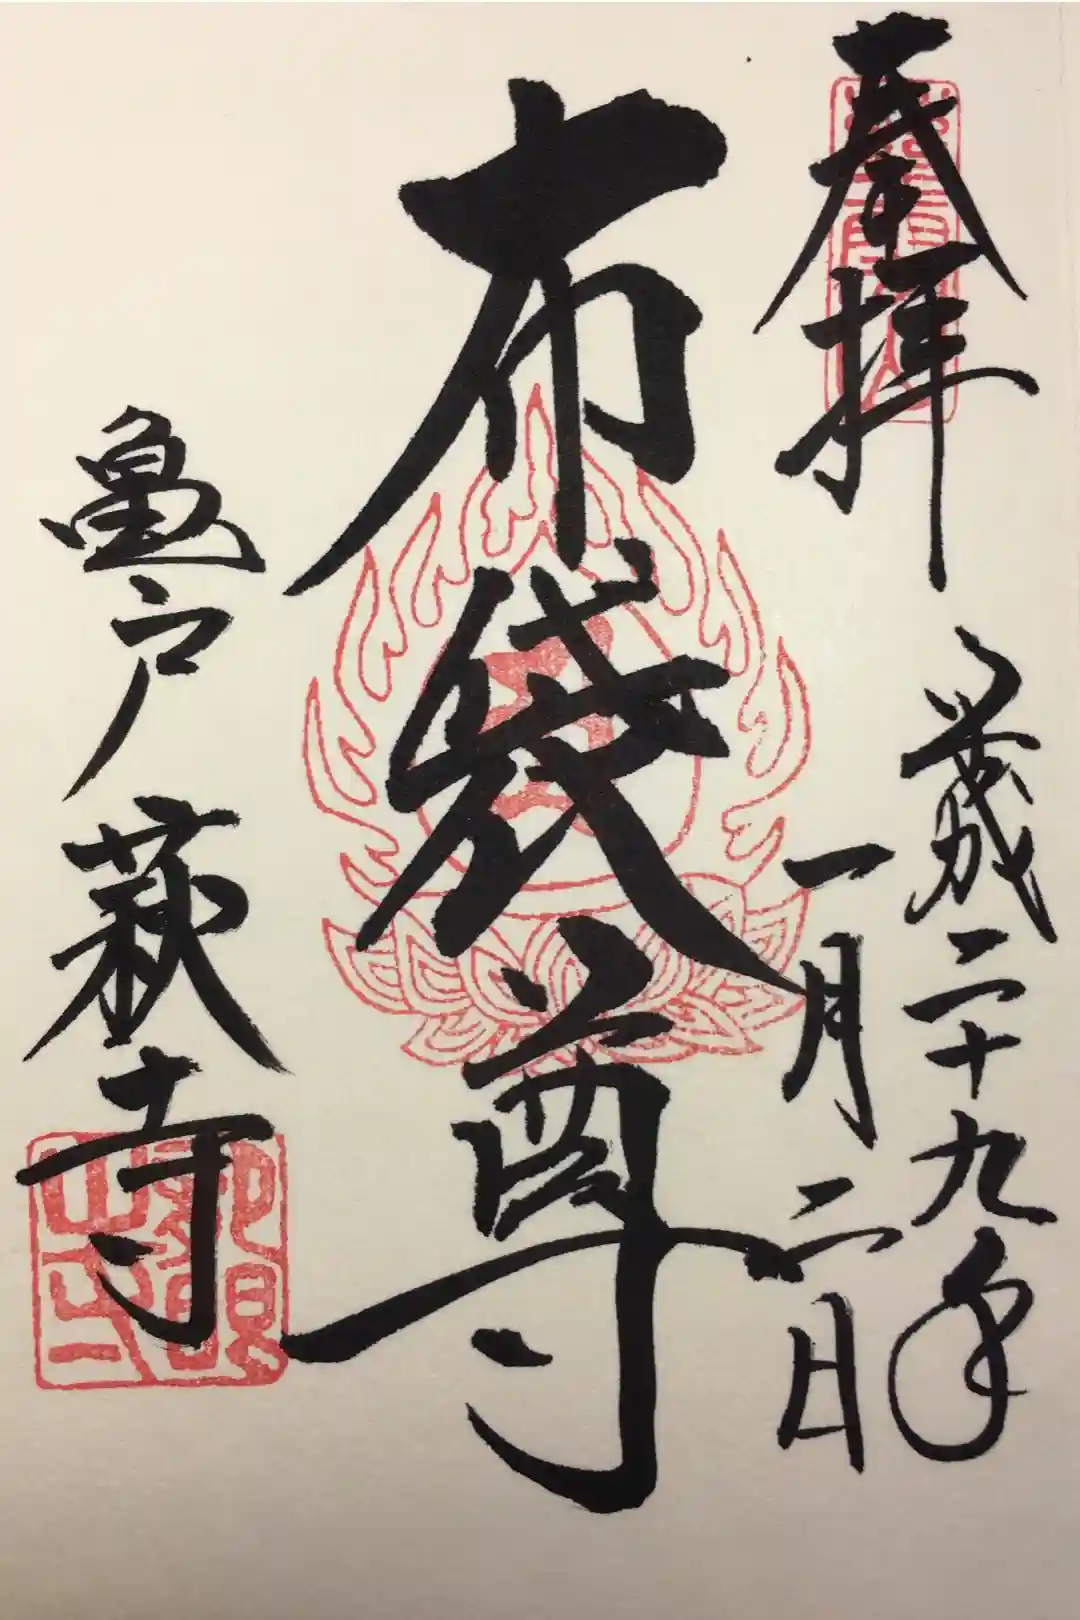 奉拝
平成二十九年
一月二日
布袋尊
亀戸
萩寺